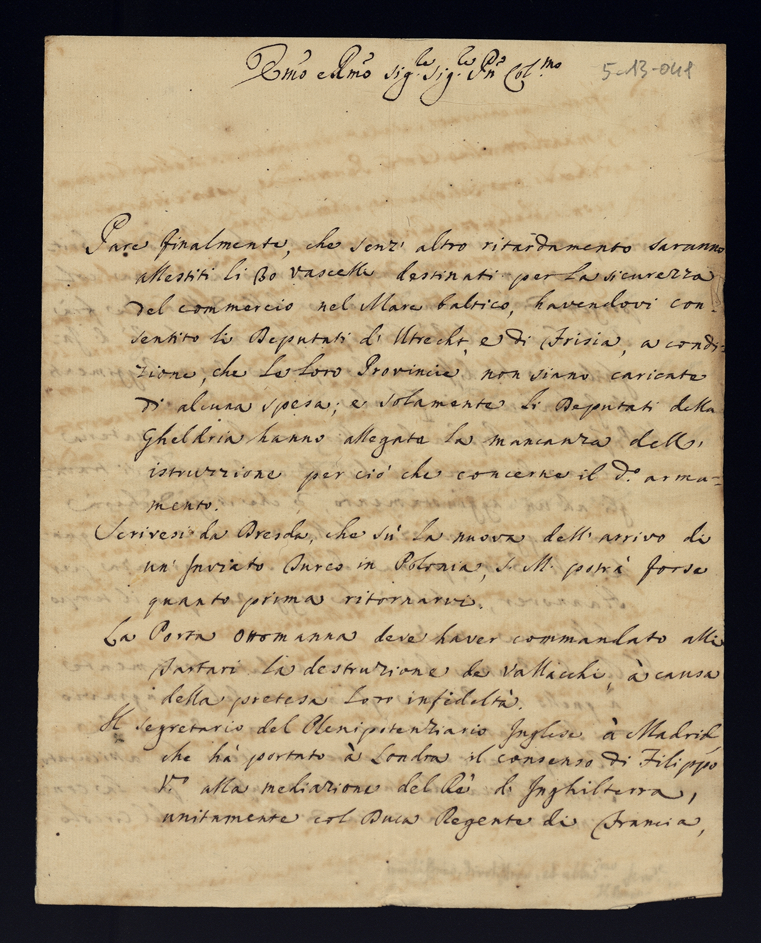 Emo e Rmo Sig.re Sig.re Pne Col.mo
5-13-041
Pare finalmente, che senz' altro ritardamento saranno
allestiti li 30 vascelli destinati per la sicurezza
del commercio nel Mare baltico, havendovi con-
sentito li Deputati d' Utrecht, e di Frisia, a condi-
zione, che le loro Provincie, non siano caricate
di alcuna spesa; e solamente li Deputati della
Gheldria hanno allegate la mancanza dell'
istruzzione per ciò che concerne il d.o arma-
mento.
Scrivesi da Dresda, che sù la nuova dell' arrivo di
un' Inviato Turco in Polonia, S. M. potrà forse
quanto prima ritornarvi.
La Porta Ottomanna deve haver commandato alli
Tartari la destruzione de Vallacchi, à causa
della pretesa loro infedeltà.
Il segretario del Plenipotenziario Inglese à Madrid,
che hà portato à Londra il consenso di Filippo
V.o alla mediazione del Rè d' Inghilterra,
unitamente col Duca Regente di Francia,